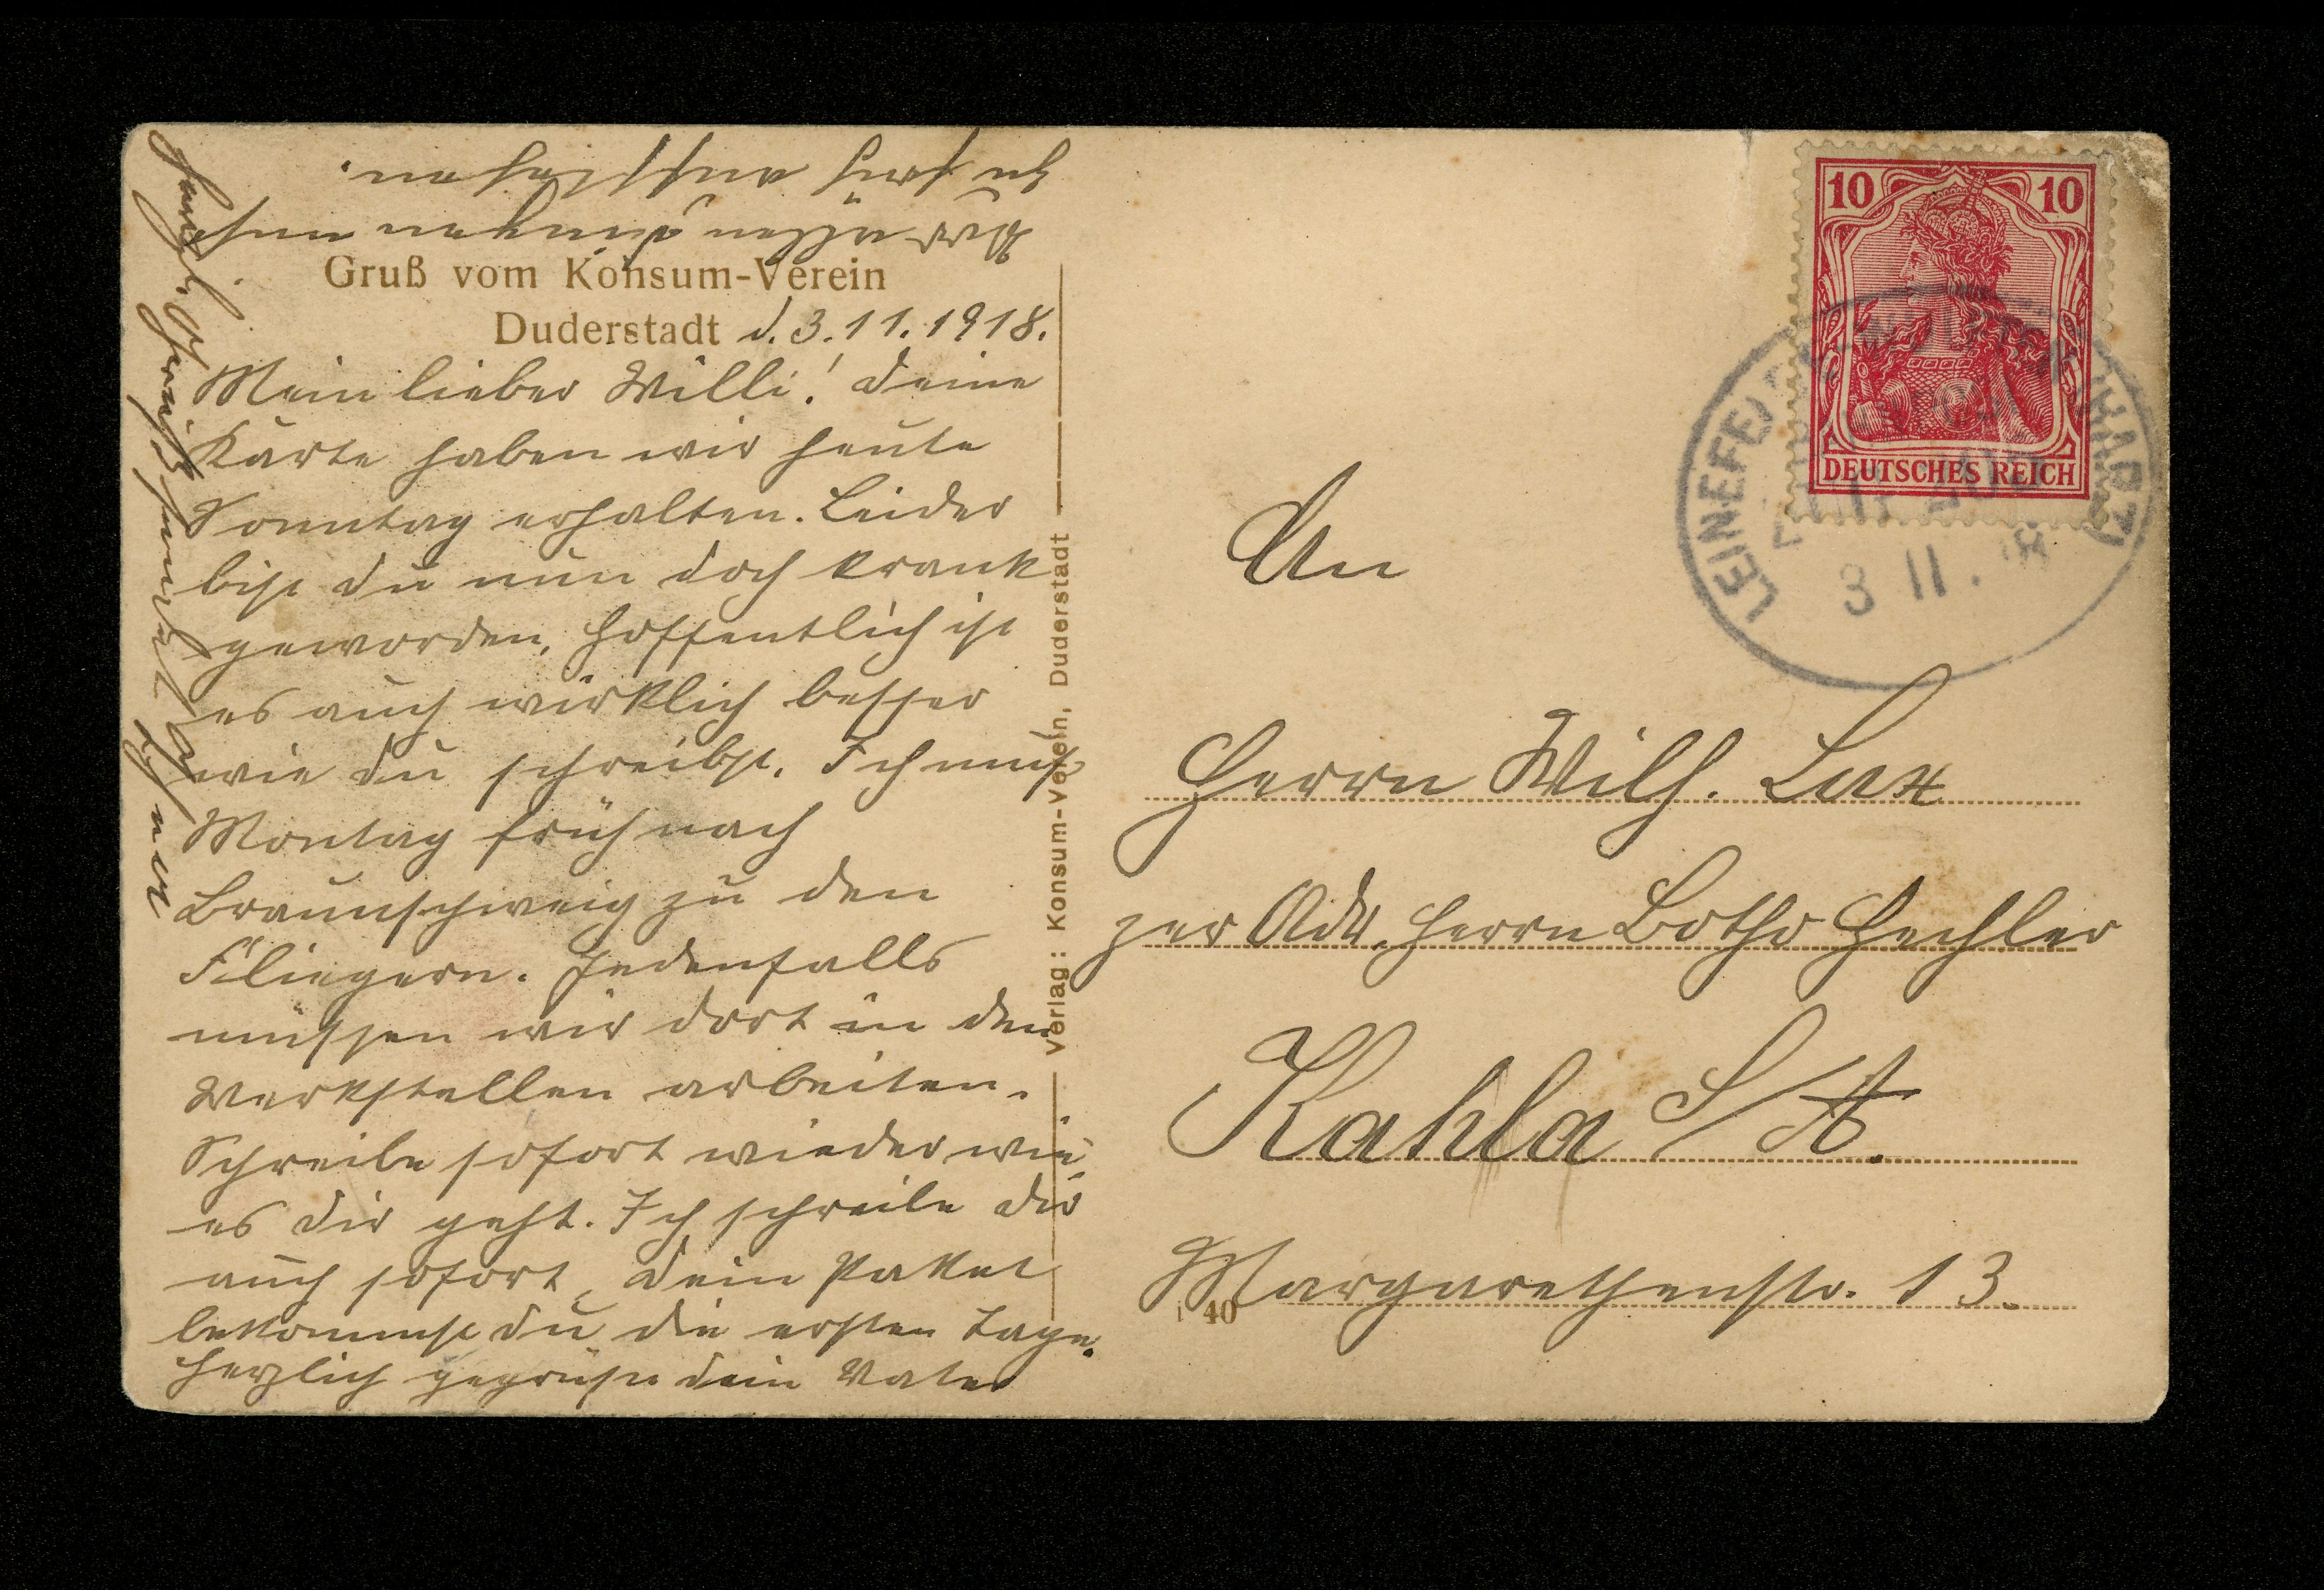 Gruß vom Konsum-Verein
Duderstadt d. 3.11.1918.
Mein lieber Willi! Deine
Karte haben wir heute
Sonntag erhalten. Leider
bist du nun doch krank
geworden, hoffentlich ist
es auch wirklich besser
wie du schreibst. Ich muß
Montag früh nach
Braunschweig zu den
Fliegern. Jedenfalls
müssen wir dort in den
Werkstellen arbeiten.
Schreibe sofort wieder wie
es dir geht. Ich schreibe dir
auch sofort, dein Paket
bekommst du die ersten Tage.
Herzlich gegrüßt dein Vater
Herzl. Gruß sendet
Vor allen Dingen mußt
du hübsch
Verlag: Konsum-Verein, Duderstadt
10 10
DEUTSCHES REICH
LEINEFELDE
3 11. 18
An
Herrn Wilh. Lux
per Adr. Herrn Botho Hechler
Kahla S/A.
Margarethenstr. 13.
40